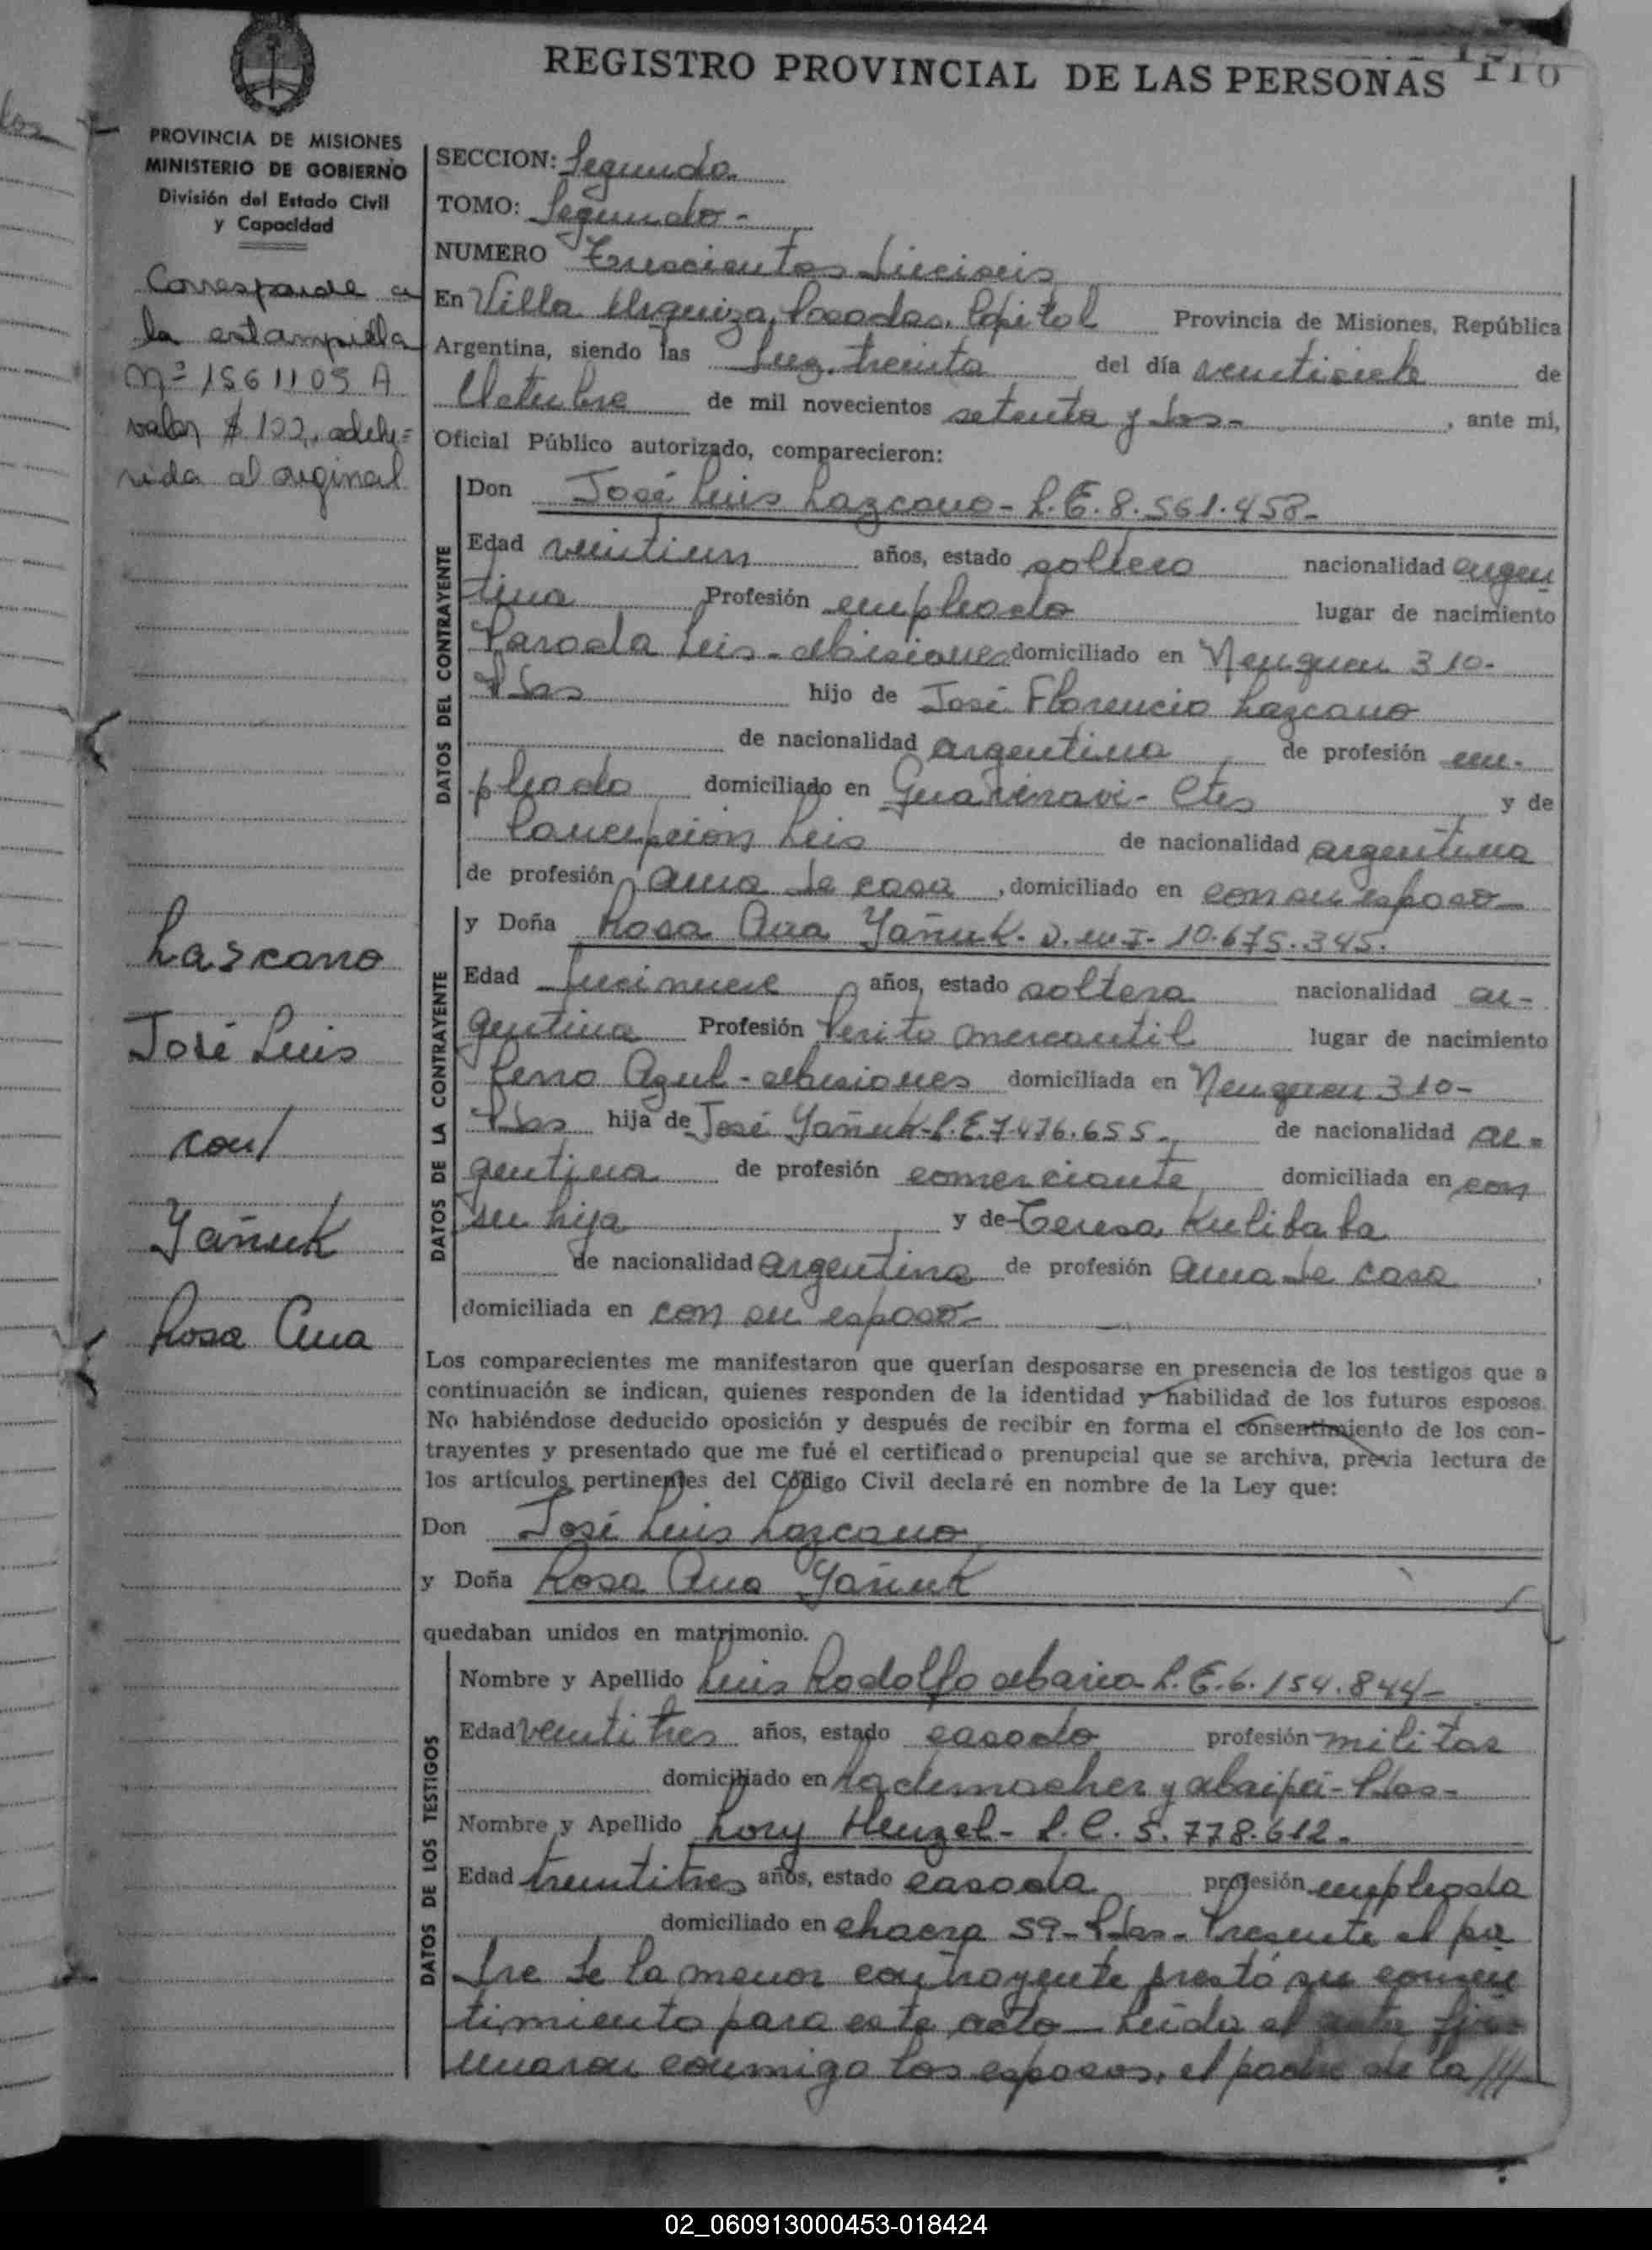 REGISTRO PROVINCIAL DE LAS PERSONAS
PROVINCIA DE MISIONES
MINISTERIO DE GOBIERNO
División del Estado Civil
y Capacidad
Corresponde a
la estampilla
Nº 1561105 A
valor $ 100, adhe=
rida al original
Lazcano
José Luis
con/
Yañuk
Rosa Ana
SECCION: Segunda
TOMO: Segundo -
NUMERO Trescientos Dieciseis
En Villa Urquiza, Posadas, Capital Provincia de Misiones, República
Argentina, siendo las Diez, treinta del día veintisiete de
Octubre de mil novecientos setenta y dos- , ante mi,
Oficial Público autorizado, comparecieron:
DATOS DEL CONTRAYENTE
Don José Luis Lazcano - L.E. 8.561.458-
Edad veintiun años, estado soltero nacionalidad argen
tina Profesión empleado lugar de nacimiento
Parada Leis - Misiones domiciliado en Neuquen 310-
Pdas hijo de José Florencio Lazcano
de nacionalidad argentina de profesión em-
pleado domiciliado en Guaviravi - Ctes y de
Concepcion Leis de nacionalidad argentina
de profesión ama de casa , domiciliado en con su esposo-
DATOS DE LA CONTRAYENTE
y Doña Rosa Ana Yañuk - D.N.I- 10.675.345.
Edad diecinueve años, estado soltera nacionalidad ar-
gentina Profesión Perito mercantil lugar de nacimiento
Cerro Azul - Misiones domiciliada en Neuquen 310-
Pdas hija de José Yañuk - L.E. 7.476.655-, de nacionalidad ar-
gentina de profesión comerciante domiciliada en con
su hija y de Teresa Kulibaba
de nacionalidad argentina de profesión ama de casa ,
domiciliada en con su esposo-
Los comparecientes me manifestaron que querían desposarse en presencia de los testigos que a
continuación se indican, quienes responden de la identidad y habilidad de los futuros esposos.
No habiéndose deducido oposición y después de recibir en forma el consentimiento de los con-
trayentes y presentado que me fué el certificado prenupcial que se archiva, previa lectura de
los artículos pertinentes del Código Civil declaré en nombre de la Ley que:
Don José Luis Lazcano
y Doña Rosa Ana Yañuk
quedaban unidos en matrimonio.
DATOS DE LOS TESTIGOS
Nombre y Apellido Luis Rodolfo L.E. 6.154.844-
Edad veintitres años, estado casado profesión militar
domiciliado en Rademacher y Maipú - Pdas-
Nombre y Apellido Lory Henzel - L.C. 5.778.612-
Edad treintitres años, estado casada profesión empleada
domiciliado en chacra 59 - Pdas - Presente el pa
dre de la menor contrayente prestó su consen
timiento para este acto - Leída el acta fir-
maron conmigo los esposos, el padre de la ///-
02_060913000453-018424